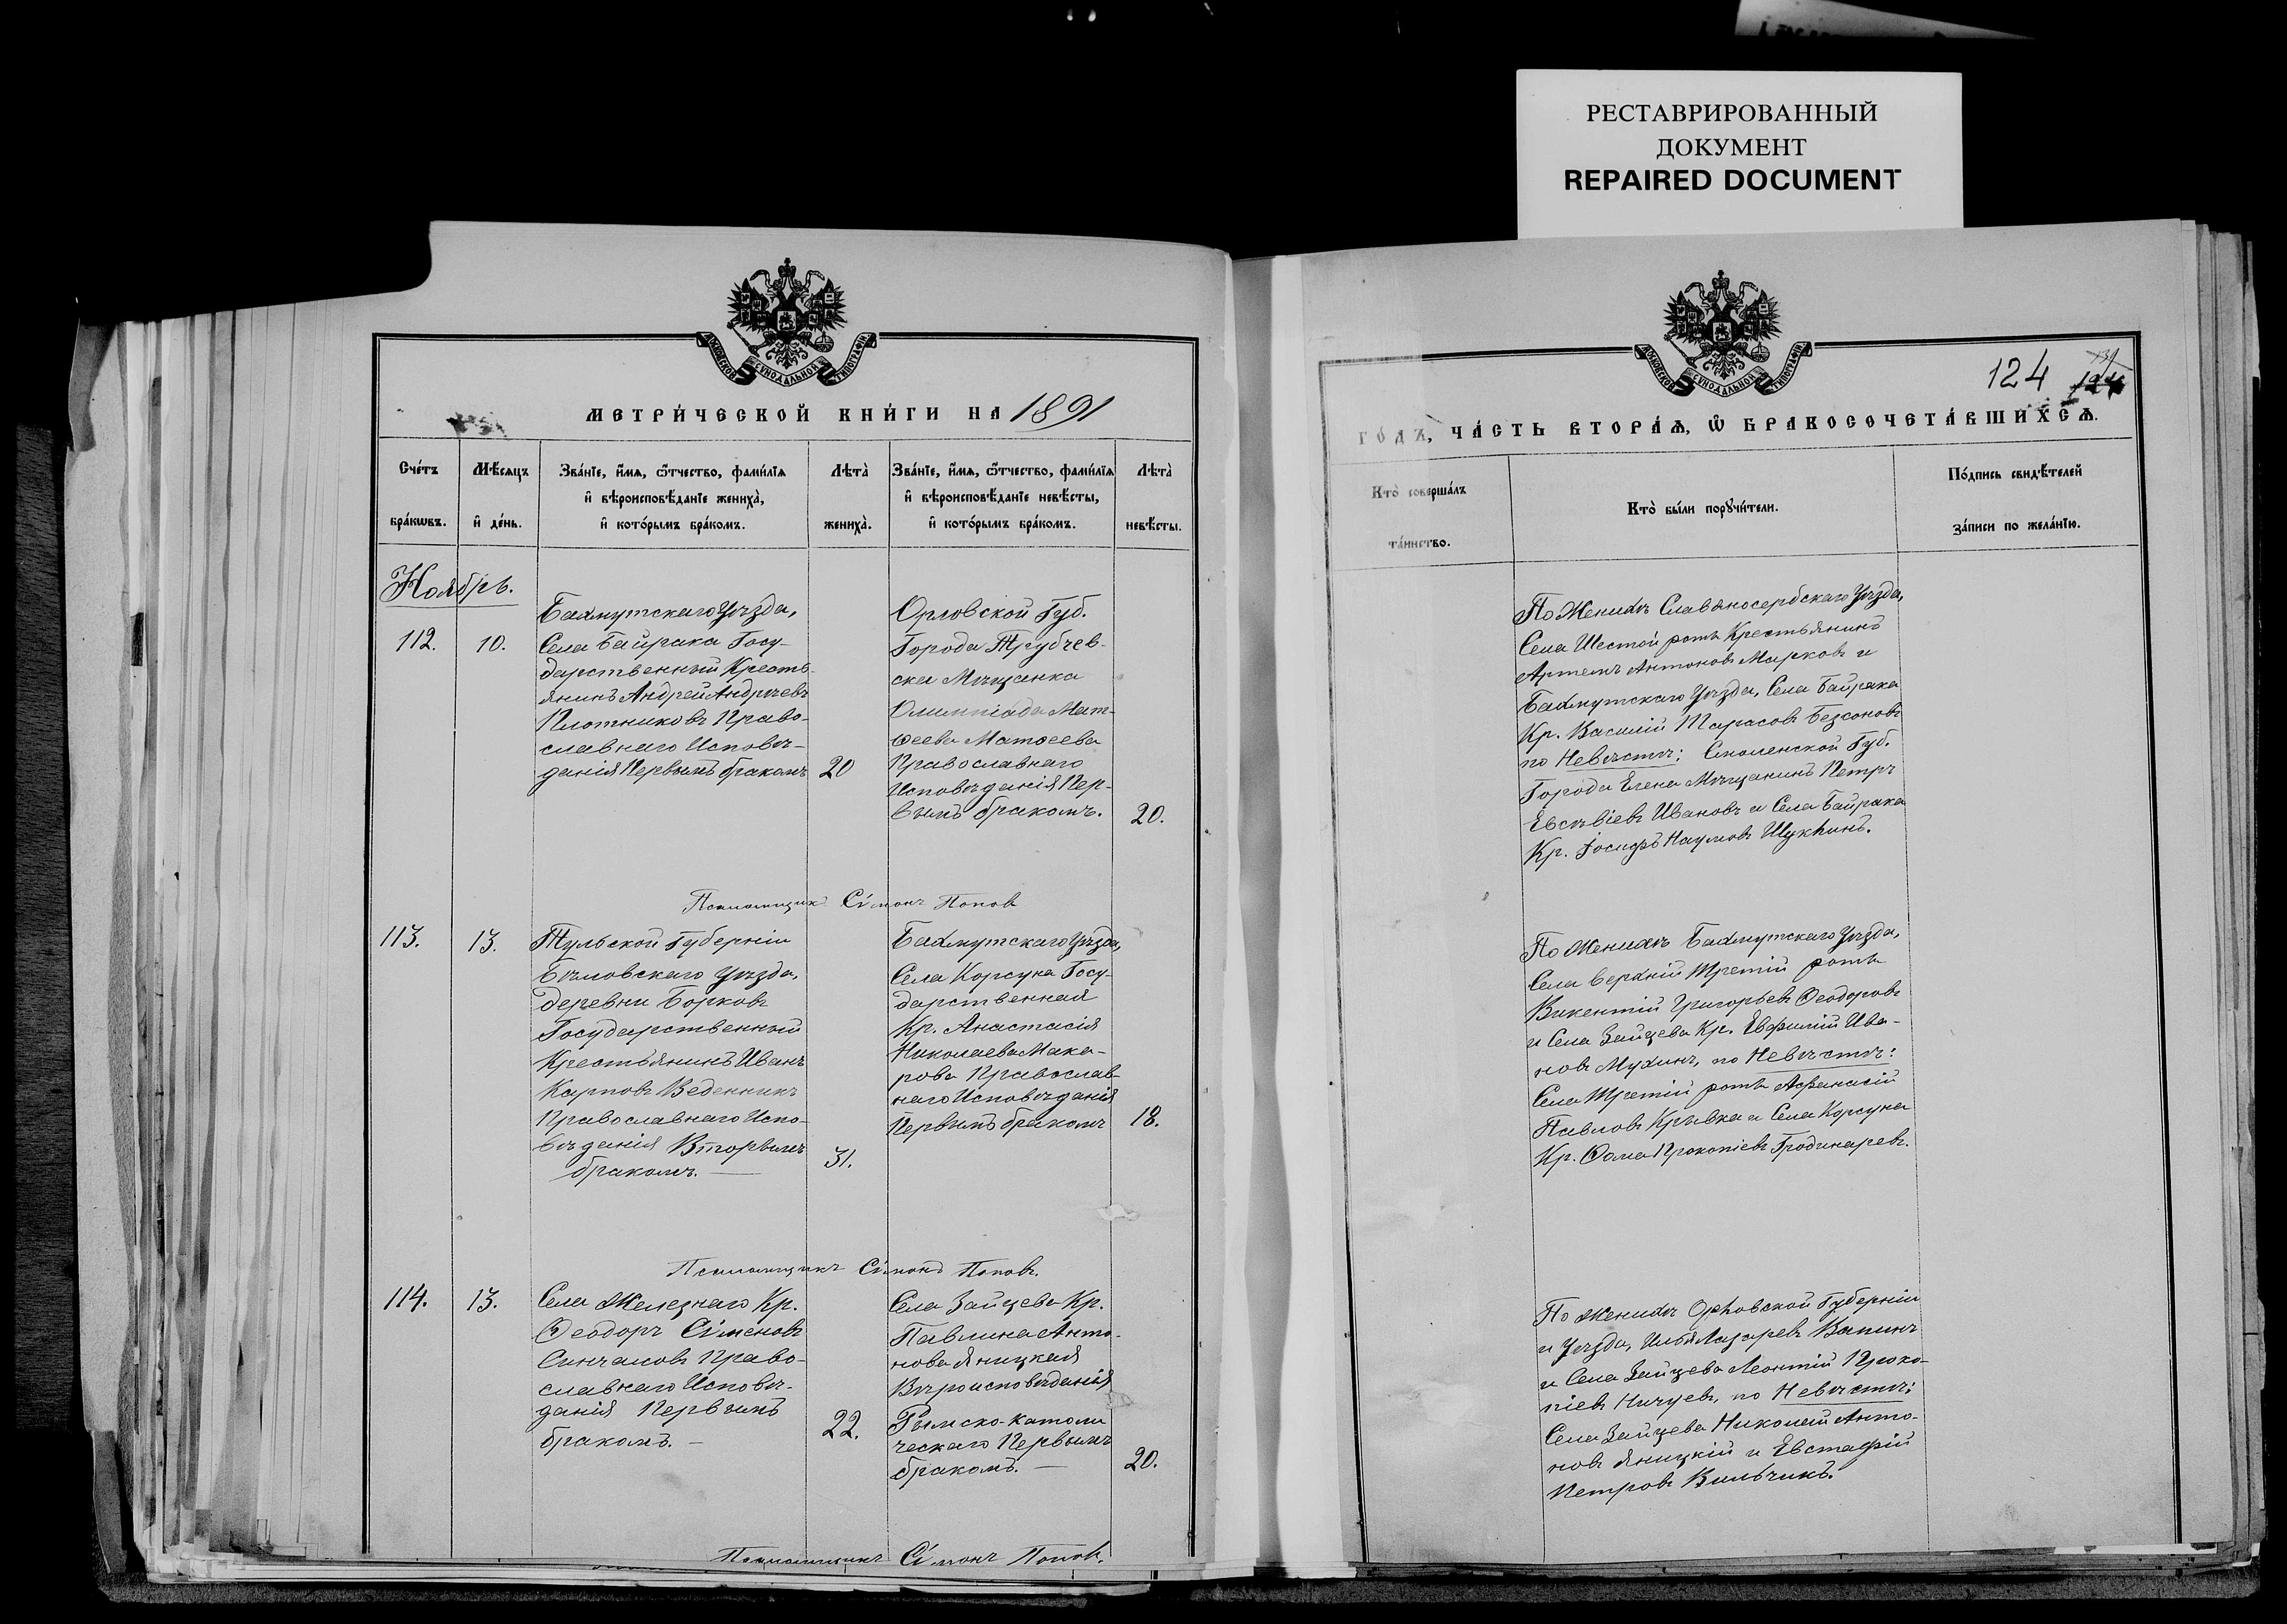 РЕСТАВРИРОВАННЫЙ
ДОКУМЕНТ
REPAIRED DOCUMENT
МОСКОВСКОЙ СѴНОДАЛЬНОЙ ТИПОГРАФІИ
МЕТРИ́ЧЕСКОЙ КНИ́ГИ НА 1891
Сче́тъ бра́кѡвъ.
Мѣ́сяцъ и҆ де́нь.
Зва́нїе, и҆́мя, ѻ҆́тчество, фами́лїя
и҆ вѣроисповѣ́данїе жениха̀,
и҆ кото́рымъ бра́комъ.
Лѣта̀ жениха̀.
Зва́нїе, и҆́мя, ѻ҆́тчество, фами́лїя
и҆ вѣроисповѣ́данїе невѣ́сты,
и҆ кото́рымъ бра́комъ.
Лѣта̀ невѣ́сты.
Ноябрь.
112.
10.
Бахмутскаго Уѣзда,
Села Байрака Госу-
дарственный Кресть-
янинъ Андрей Андреевъ
Плотниковъ Право-
славнаго Исповѣ-
данія Первымъ бракомъ
20
Орловской Губ.
Города Трубчев-
ска Мѣщанка
Олимпіада Мат-
ѳеева Матѳеева
Православнаго
Исповѣданія Пер-
вымъ бракомъ.
20.
Псаломщикъ Сімонъ Попов
113.
13.
Тульской Губерніи
Бѣловскаго Уѣзда,
деревни Борковъ
Государственный
Крестьянинъ Иванъ
Карповъ Веденникъ
Православнаго Испо-
вѣданія Вторымъ
бракомъ.
31.
Бахмутскаго Уѣзда,
Села Корсуна Госу-
дарственная
Кр. Анастасія
Николаева Мака-
рова Православ-
наго Исповѣданія
Первымъ бракомъ
18.
Псаломщикъ Сімонъ Поповъ.
114.
13.
Села Железнаго Кр.
Ѳеодоръ Сіменовъ
Синчаловъ Право-
славнаго Исповѣ-
данія Первымъ
бракомъ.
22.
Села Зайцева Кр.
Павлина Анто-
нова Яницкая
Вѣроисповѣданія
Римско-католи
ческаго Первымъ
бракомъ.
20.
Псаломщикъ Сімонъ Попов.
МОСКОВСКОЙ СѴНОДАЛЬНОЙ ТИПОГРАФІИ
124
ГО́ДЪ, ЧА́СТЬ ВТОРА́Ѧ, Ѡ҆ БРАКОСОЧЕТА́ВШИХСѦ.
Кто̀ соверша́лъ
та́инство.
Кто̀ бы́ли порꙋчи́тели.
По́дпись свидѣ́телей
за́писи по жела́нїю.
По Женихѣ Славяносербскаго Уѣзда,
Села Шестой ротѣ Крестьянинъ
Артемъ Антоновъ Марковъ и
Бахмутскаго Уѣзда, Села Байрака
Кр. Василій Тарасовъ Безсоновъ
по Невѣстѣ: Смоленской Губ.
Города Елена Мѣщанинъ Петръ
Евсѣвіевъ Ивановъ и Села Байрака
Кр. Іосифъ Наумовъ Щукинъ.
По Женихѣ Бахмутскаго Уѣзда,
Села Верхній Третій ротѣ
Викентій Григорьевъ Ѳеодоровъ
и Села Зайцева Кр. Евфимій Ива-
новъ Мухинъ, по Невѣстѣ:
Села Третій ротѣ Афанасій
Павловъ Крывка и Села Корсуна
Кр. Ѳома Прокопіевъ Гродинаревъ.
По Женихѣ Орловской Губерніи
и Уѣзда, Илья Лазаревъ Вапинъ
и Села Зайцева Леонтій Проко-
піевъ Ничуевъ, по Невѣстѣ:
Села Зайцева Николай Анто-
новъ Яницкій и Евстафій
Петровъ Вильчикъ.